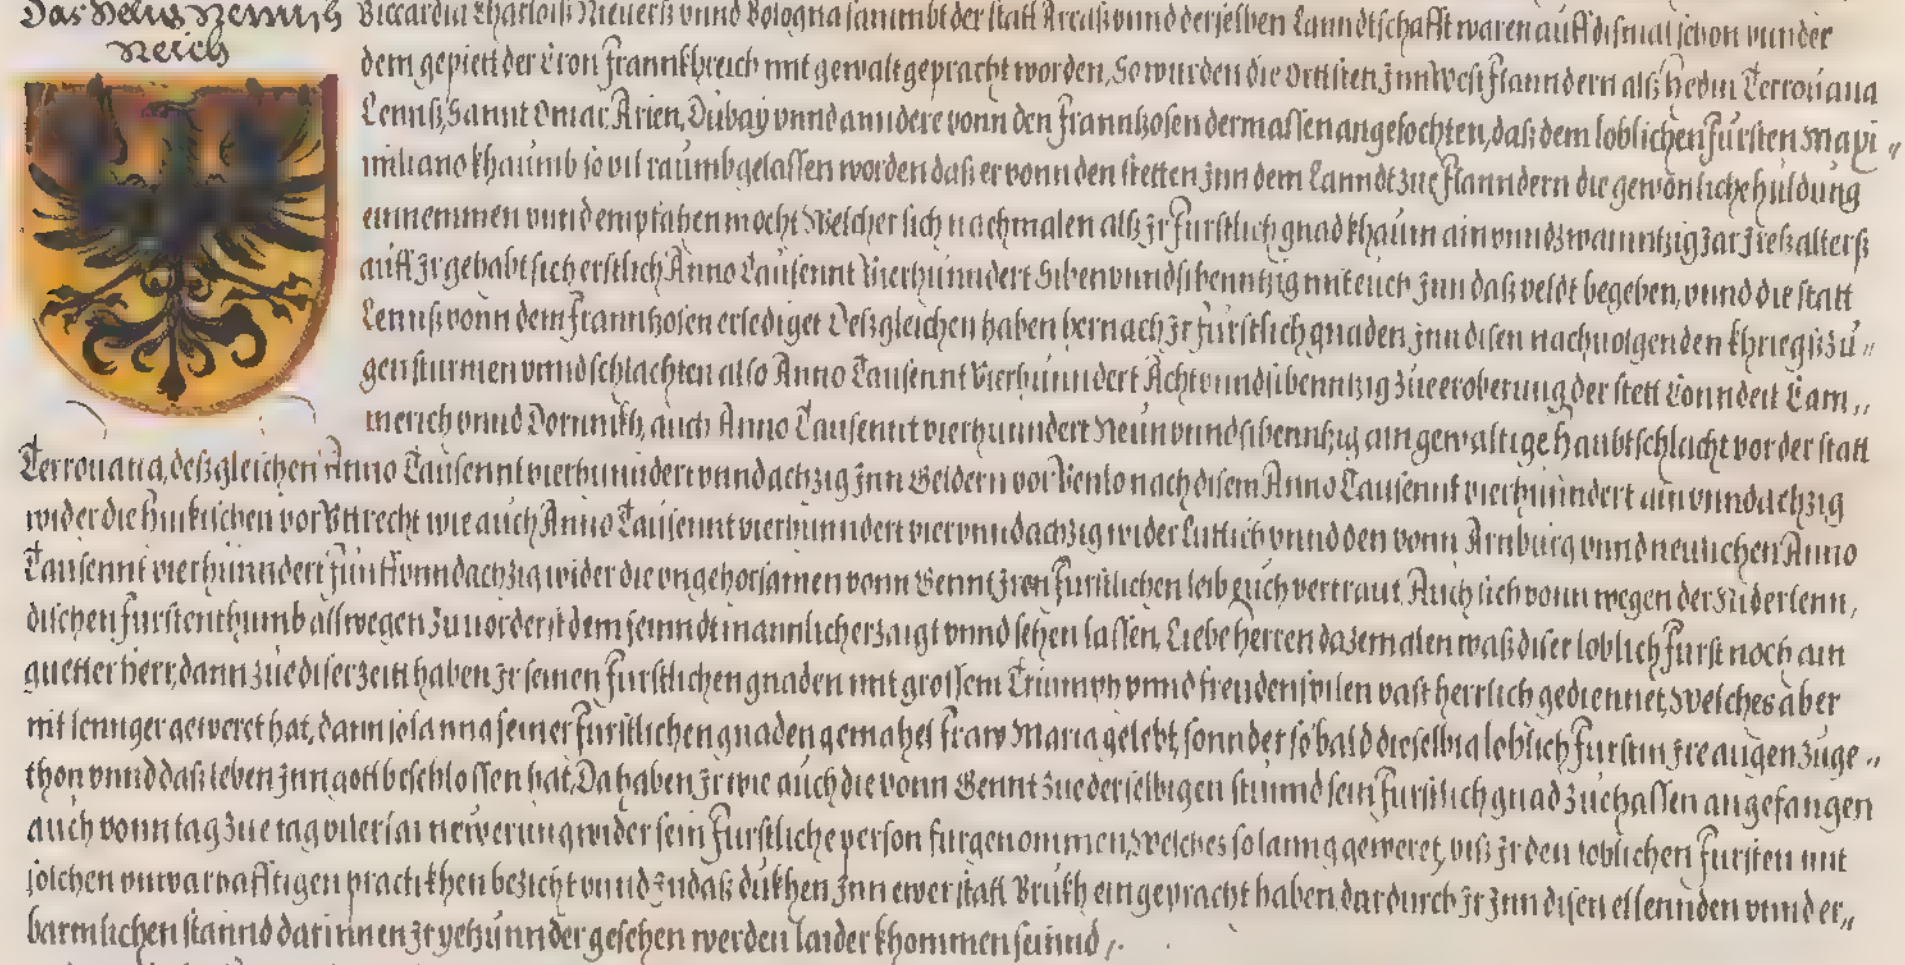 Das Heilig Römisch
Reich
Biccardia Charlois Niuerß vnnd Bologna sammbt der statt Areaß vnnd derselben Lanndtschafft waren auff dismal schon vunder
dem gepiett der Cron Frannkhreich mit gewalt gepracht worden, So wurden die Ortt Isten Inn West Flanndern alß Hedin Terrouana
Lennß, Sannt Omar, Arien, Dúbay vnnd anndere vonn den Frannzosen dermassen angefochten, daß dem loblichen Fúrsten Maxi„
miliano khaúmb so vil raúmb gelassen worden daß er vonn den stetten Inn dem Lanndt zúe Flanndern die gewönliche húldúng
einnemmen vnnd empfahen mocht Welcher sich nachmalen alß Ir Fúrstlich gnad khaúm ain vnnd zwainntzig Jar Ireß alterß
aúff Ir gehabt sich erstlich Anno Taúsennt Vierhúnndert Siben vnnd sibenntzig mit eúch Inn daß veldt begeben, vnnd die statt
Lennß vonn dem Frannzosen erlediget Desgleichen haben hernach Ir fúrstlich gnaden Inn disen nachuolgenden khriegßzú„
gen stúrmen vnnd schlachten also Anno Taúsennt Vierhúnndert Acht vnnd sibenntzig zúe eroberúng der stett Conndet Cam„
merich vnnd Dornnikh, aúch Anno Taúsennt vierhúnndert Neún vnnd sibenntzig ain gewaltige Haúbtschlacht vor der statt
Terrouana, deßgleichen Anno Taúsennt vierhúnndert vnnd achzig Inn Geldern vor Venlo nach disem Anno Taúsennt vierhúnndert ain vnnd achzig
wider die Húkischen vor Vttrecht wie aúch Anno Taúsennt vierhúnndert vier vnnd achzig wider Lúttich vnnd den vonn Arnbúrg vnnd neúlichen Anno
Taúsennt vierhúnndert fúnff vnnd achzig wider die vngehorsamen vonn Gennt Iren Fúrstlichen leib eúch vertraút, Aúch sich vonn wegen der Niderlenn„
dischen fúrstenthúmb allwegen zúuorderist dem feinndt mannlich erzaigt vnnd sehen lassen, Liebe Herren dazemalen waß diser loblich Fúrst noch ain
gúetter Herr, dann zúe diser zeitt haben Ir seinen Fúrstlichen gnaden mit grossem Triúmph vnnd freúdenspilen vast herrlich gediennet, Welches aber
nit lennger geweret hat, dann so lanng seiner Fúrstlichen gnaden gemahel Fraw Maria gelebt, sonnder so bald dieselbig loblich Fúrstin Ire aúgen zúge„
thon vnnd daß leben Inn gott beschlossen hat, Da haben Ir wie aúch die vonn Gennt zúe derselbigen stúnnd sein Fúrstlich gnad zúe hassen angefangen
aúch vonn tag zúe tag vilerlai newerúng wider sein Fúrstliche person fúrgenommen, Welches so lanng geweret, biß Ir den loblichen Fúrsten mit
solchen vnwarhafftigen practikhen bezicht vnnd zúdaß dúkhen Inn ewer statt Brúkh eingepracht haben, dardúrch Ir Inn disen ellennden vnnd er„
barmlichen stannd darinnen Ir yetzúnnder gesehen werden laider khommen seinnd,.